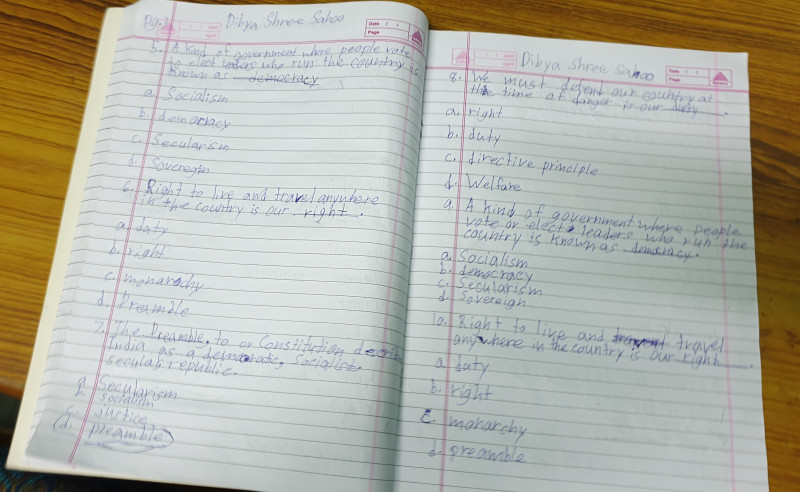 Pg:3
Dibya Shree Sahoo
Date / /
Page
5. A Kind of government where people vote
to elect leaders who run the country is
known as democracy
a. Socialism
b. democracy
c. Secularism
d. Sovereghn
6. Right to live and travel anywhere
in the country is our right.
a. duty
b. right
c. monarchy
d. Preamble
7. The Preamble, to or Constitution
India as a Socialist,
secular, republic.
Secularism
socialism
c. Justice
d. preamble
Dibya Shree Sahoo
Date / /
Page
8. We must defend our country at
the time of danger is our duty.
a. right
b. duty
c. directive principle
d. Welfare
9. A kind of government where people
vote or elect leaders who run the
country is known as democracy.
a. Socialism
b. democracy
c. Secularism
d. Sovereign
10. Right to live and travel
anywhere in the country is our right.
a. duty
b. right
c. monarchy
d. preamble